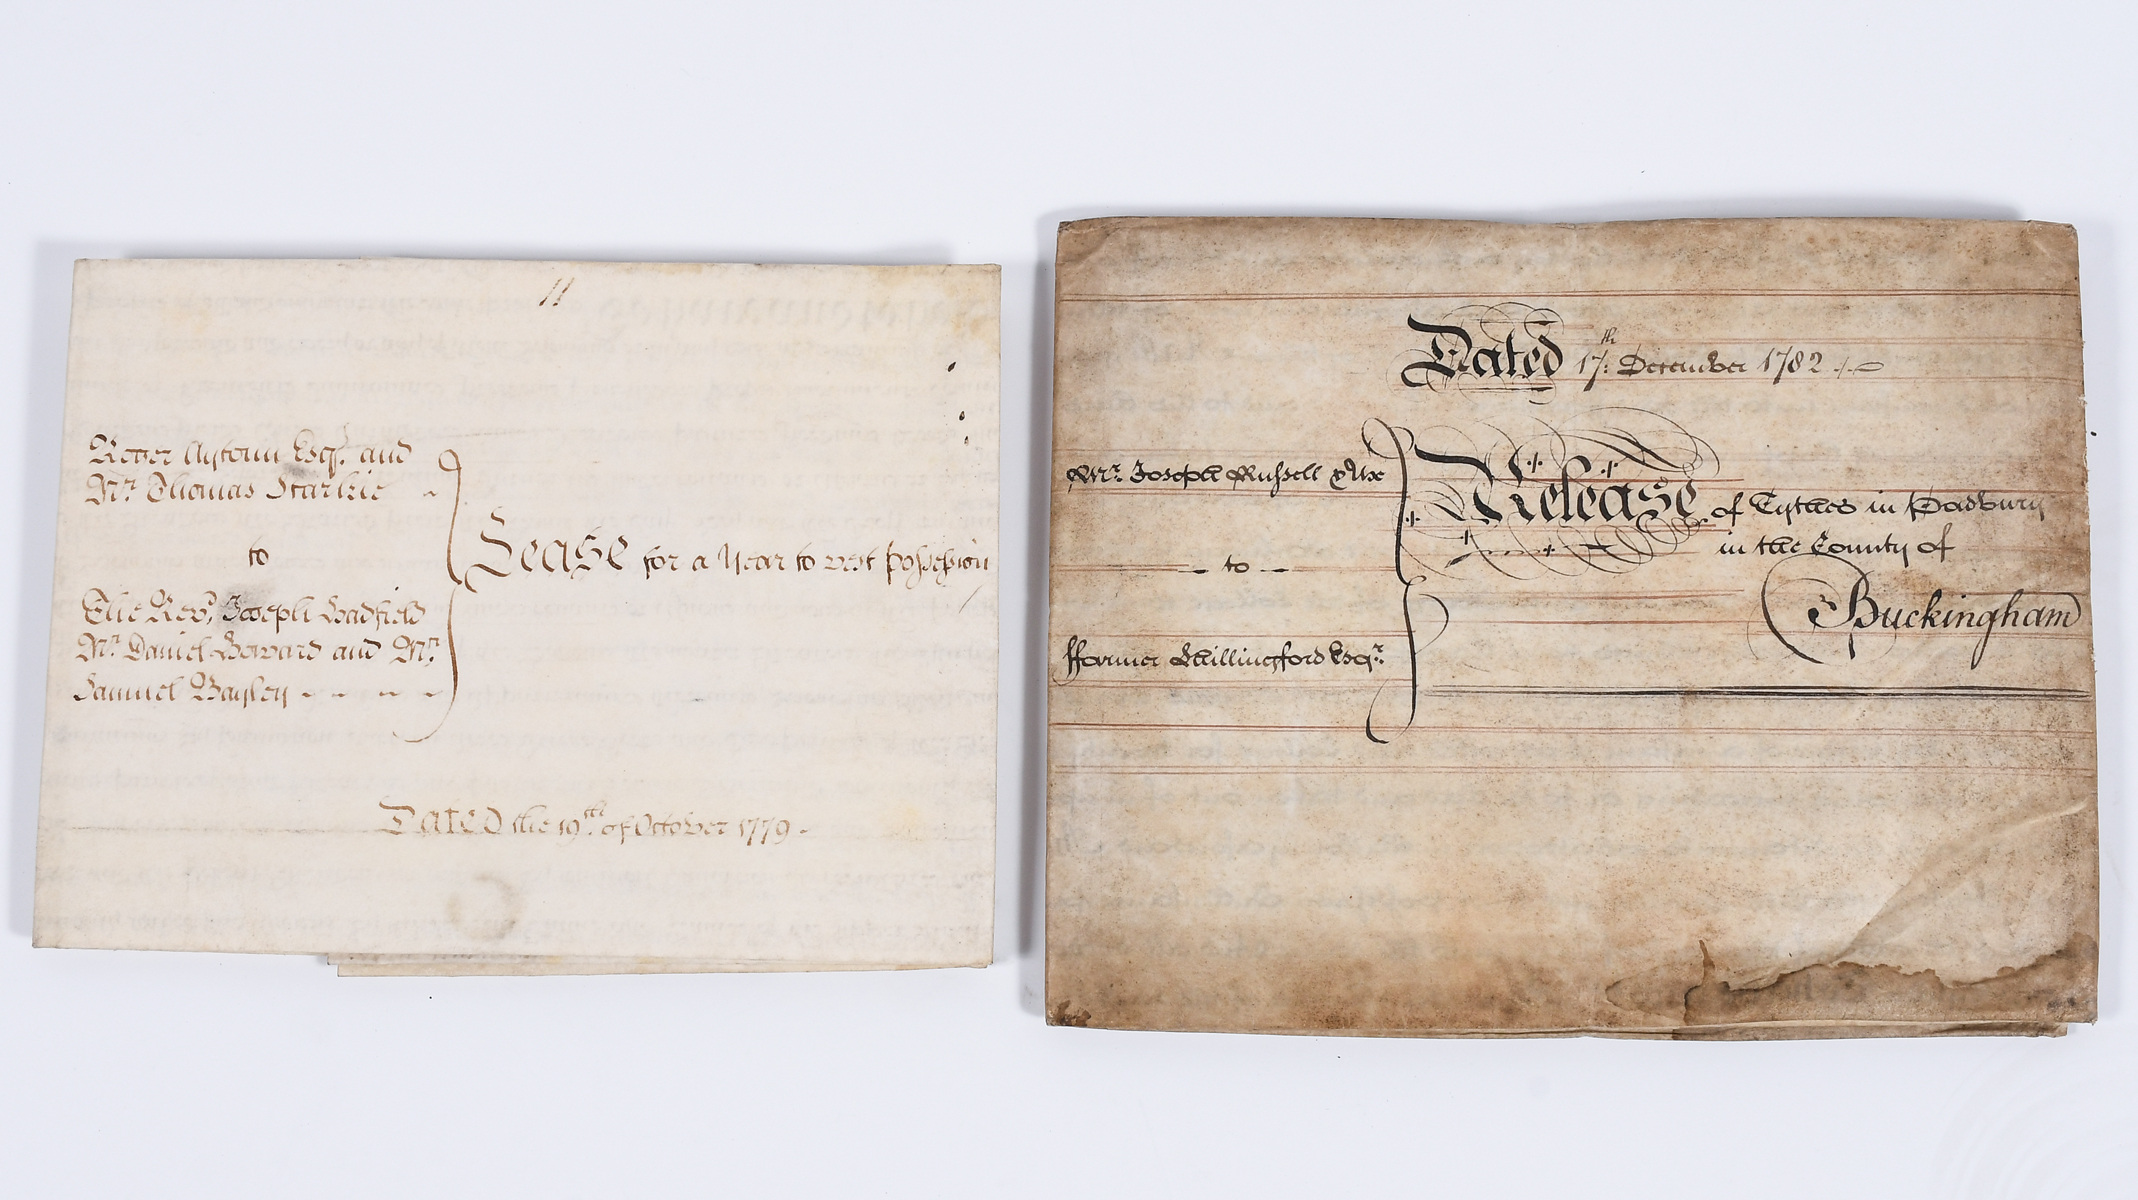 11
Roger Aytoun Esqr. and
Mr. Thomas Starkie
to
The Revd. Joseph Hadfield
Mr. Daniel Howard and Mr.
Samuel Bayley
Lease for a Year to vest Possession
Dated the 19th. of October 1779
Dated 17th: December 1782
Mr. Joseph Russell & Ux
to
ffarmer Shillingford Esqr.
Release of Tythes in Padbury
in the County of
Buckingham